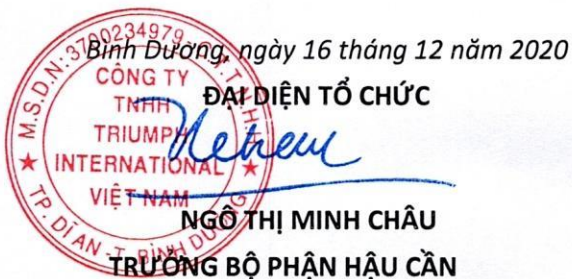 Bình Dương, ngày 16 tháng 12 năm 2020
ĐẠI DIỆN TỔ CHỨC
M.S.D.N: 3700234979
CÔNG TY
TNHH
TRIUMPH
INTERNATIONAL
VIỆT NAM
TP. DĨ AN - T. BÌNH DƯƠNG
NGÔ THỊ MINH CHÂU
TRƯỞNG BỘ PHẬN HẬU CẦN